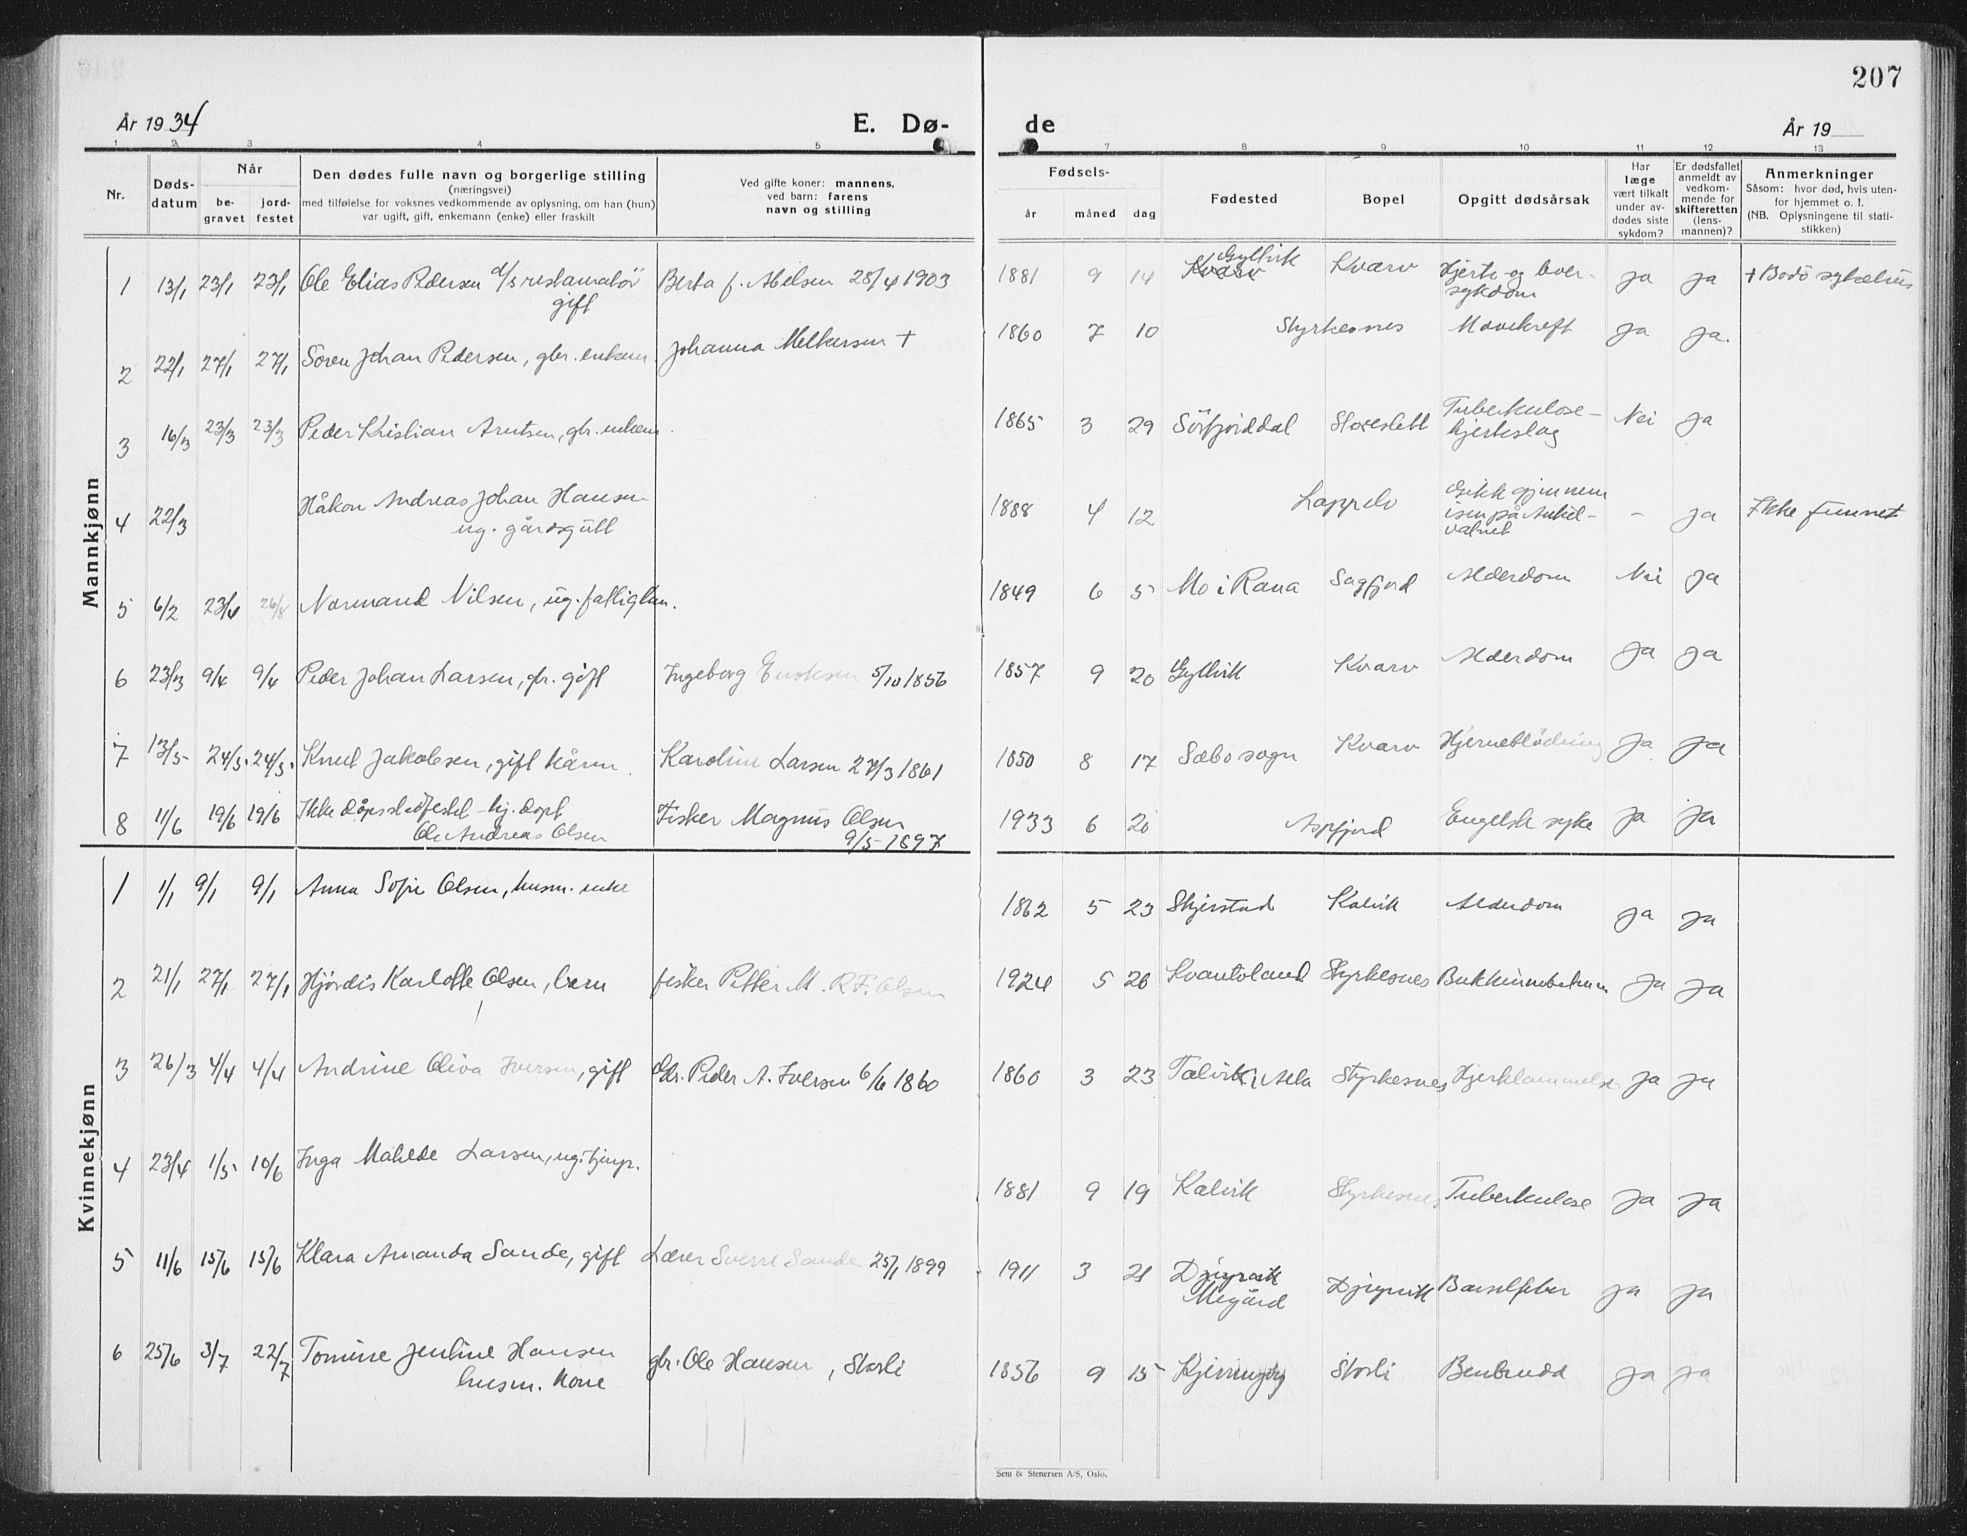 207
År 1934
E. Dø-
de
År 19
1 2 3 4 5 7 8 9 10 11 12 13
Nr.
Døds-
datum
Når
be-
gravet
jord-
festet
Den dødes fulle navn og borgerlige stilling
(næringsvei)
med tilføielse for voksnes vedkommende av oplysning, om han (hun)
var ugift, gift, enkemann (enke) eller fraskilt
Ved gifte koner: mannens,
ved barn: farens
navn og stilling
Fødsels-
år måned dag
Fødested
Bopel
Opgitt dødsårsak
Har
læge
vært tilkalt
under av-
dødes siste
sykdom?
Er dødsfallet
anmeldt av
vedkom-
mende for
skifteretten
(lens-
mannen)?
Anmerkninger
Såsom: hvor død, hvis uten-
for hjemmet o. l.
(NB. Oplysningene til stati-
stikken)
Mannkjønn
1 13/1 23/1 23/1 Ole Elias Pedersen d/s restauratør Berta f. Abelsen 28/4 1903 1881 9 14 Kvarv Kvarv Hjerte og lever- ja ja † Bodö sykehus
gift
Gyltvik
sykdom
2 22/1 27/1 27/1 Sören Johan Pedersen, gbr. enkem Johanna Melkersen † 1860 7 10 Styrkesnes Mavekreft ja ja.
3 16/3 23/3 23/3 Peder Kristian Arntsen, gbr. enkem. 1865 3 29 Sörfjorddal Storeslett Tuberkulose- Nei ja
hjerteslag
4 22/3 Håkon Andreas Johan Hansen 1888 4 12 Lappelv Gikk gjennem - ja Ikke funnet
ug. gårdsgutt
isen på
vatnet
5 6/2 23/4 26/8 Normand Nilsen, ug. fattiglem. 1849 6 5 Mo i Rana Sagfjord Alderdom Nei ja
6 23/3 9/4 9/4 Peder Johan Larsen, gbr. gift Ingeborg Enoksen 5/10 1856 1857 9 20 Gyltvik Kvarv Alderdom ja ja
7 13/5 24/5. 24/5. Knut Jakobsen, gift kårm. Karoline Larsen 27/3 1861 1850 8 17 Sæbö sogn Kvarv Hjerneblödning ja ja
8 11/6 19/6 19/6 Ikke dåpsstadfestet - hj. döpt Fisker Magnus Olsen 1933 6 20 Aspfjord Engelsk syke ja ja
Ole Andreas Olsen 9/5-1897
Kvinnekjønn
1 1/1 9/1 9/1 Anna Sofie Olsen, husm. enke 1862 5 23 Skjerstad Kalvik Alderdom ja ja
2 21/1 27/1 27/1 Hjördis Karlotte Olsen, barn fisker Petter M. R. F. Olsen 1924 5 26 Kvantoland Styrkesnes Bukhinnebetenn ja ja
3 26/3 4/4 4/4 Andrine Oliva Iversen, gift Gbr. Peder A. Iversen 6/6 1860 1860 3 23 Talvik i Alta Styrkesnes Hjertelammelse ja ja
4 23/4 1/5 10/6 Inga Matilde Larsen, ug. tjnp. 1881 9 19 Kalvik Styrkesnes, Tuberkulose ja ja
5 11/6 15/6 15/6 Klara Amanda Sande, gift Lærer Sverre Sande 25/1 1899 1911 3 21 Djupvik Djupvik Barselfeber ja ja
Megård
6 25/6 3/7 22/7 Tomine Jentine Hansen gbr. Ole Hansen, Storli 1856 9 15 Kjerringöy Storli Benbrudd ja ja
husm. kone
Sem & Stenersen A/S, Oslo.